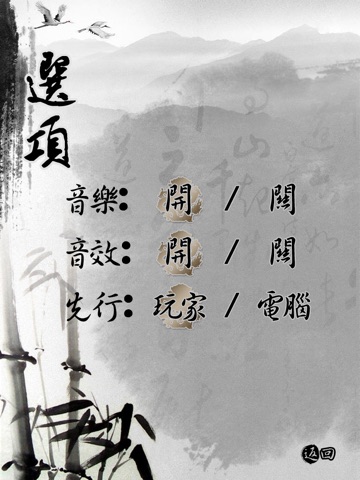 選項
音樂: 開 / 關
音效: 開 / 關
先行: 玩家 / 電腦
返回